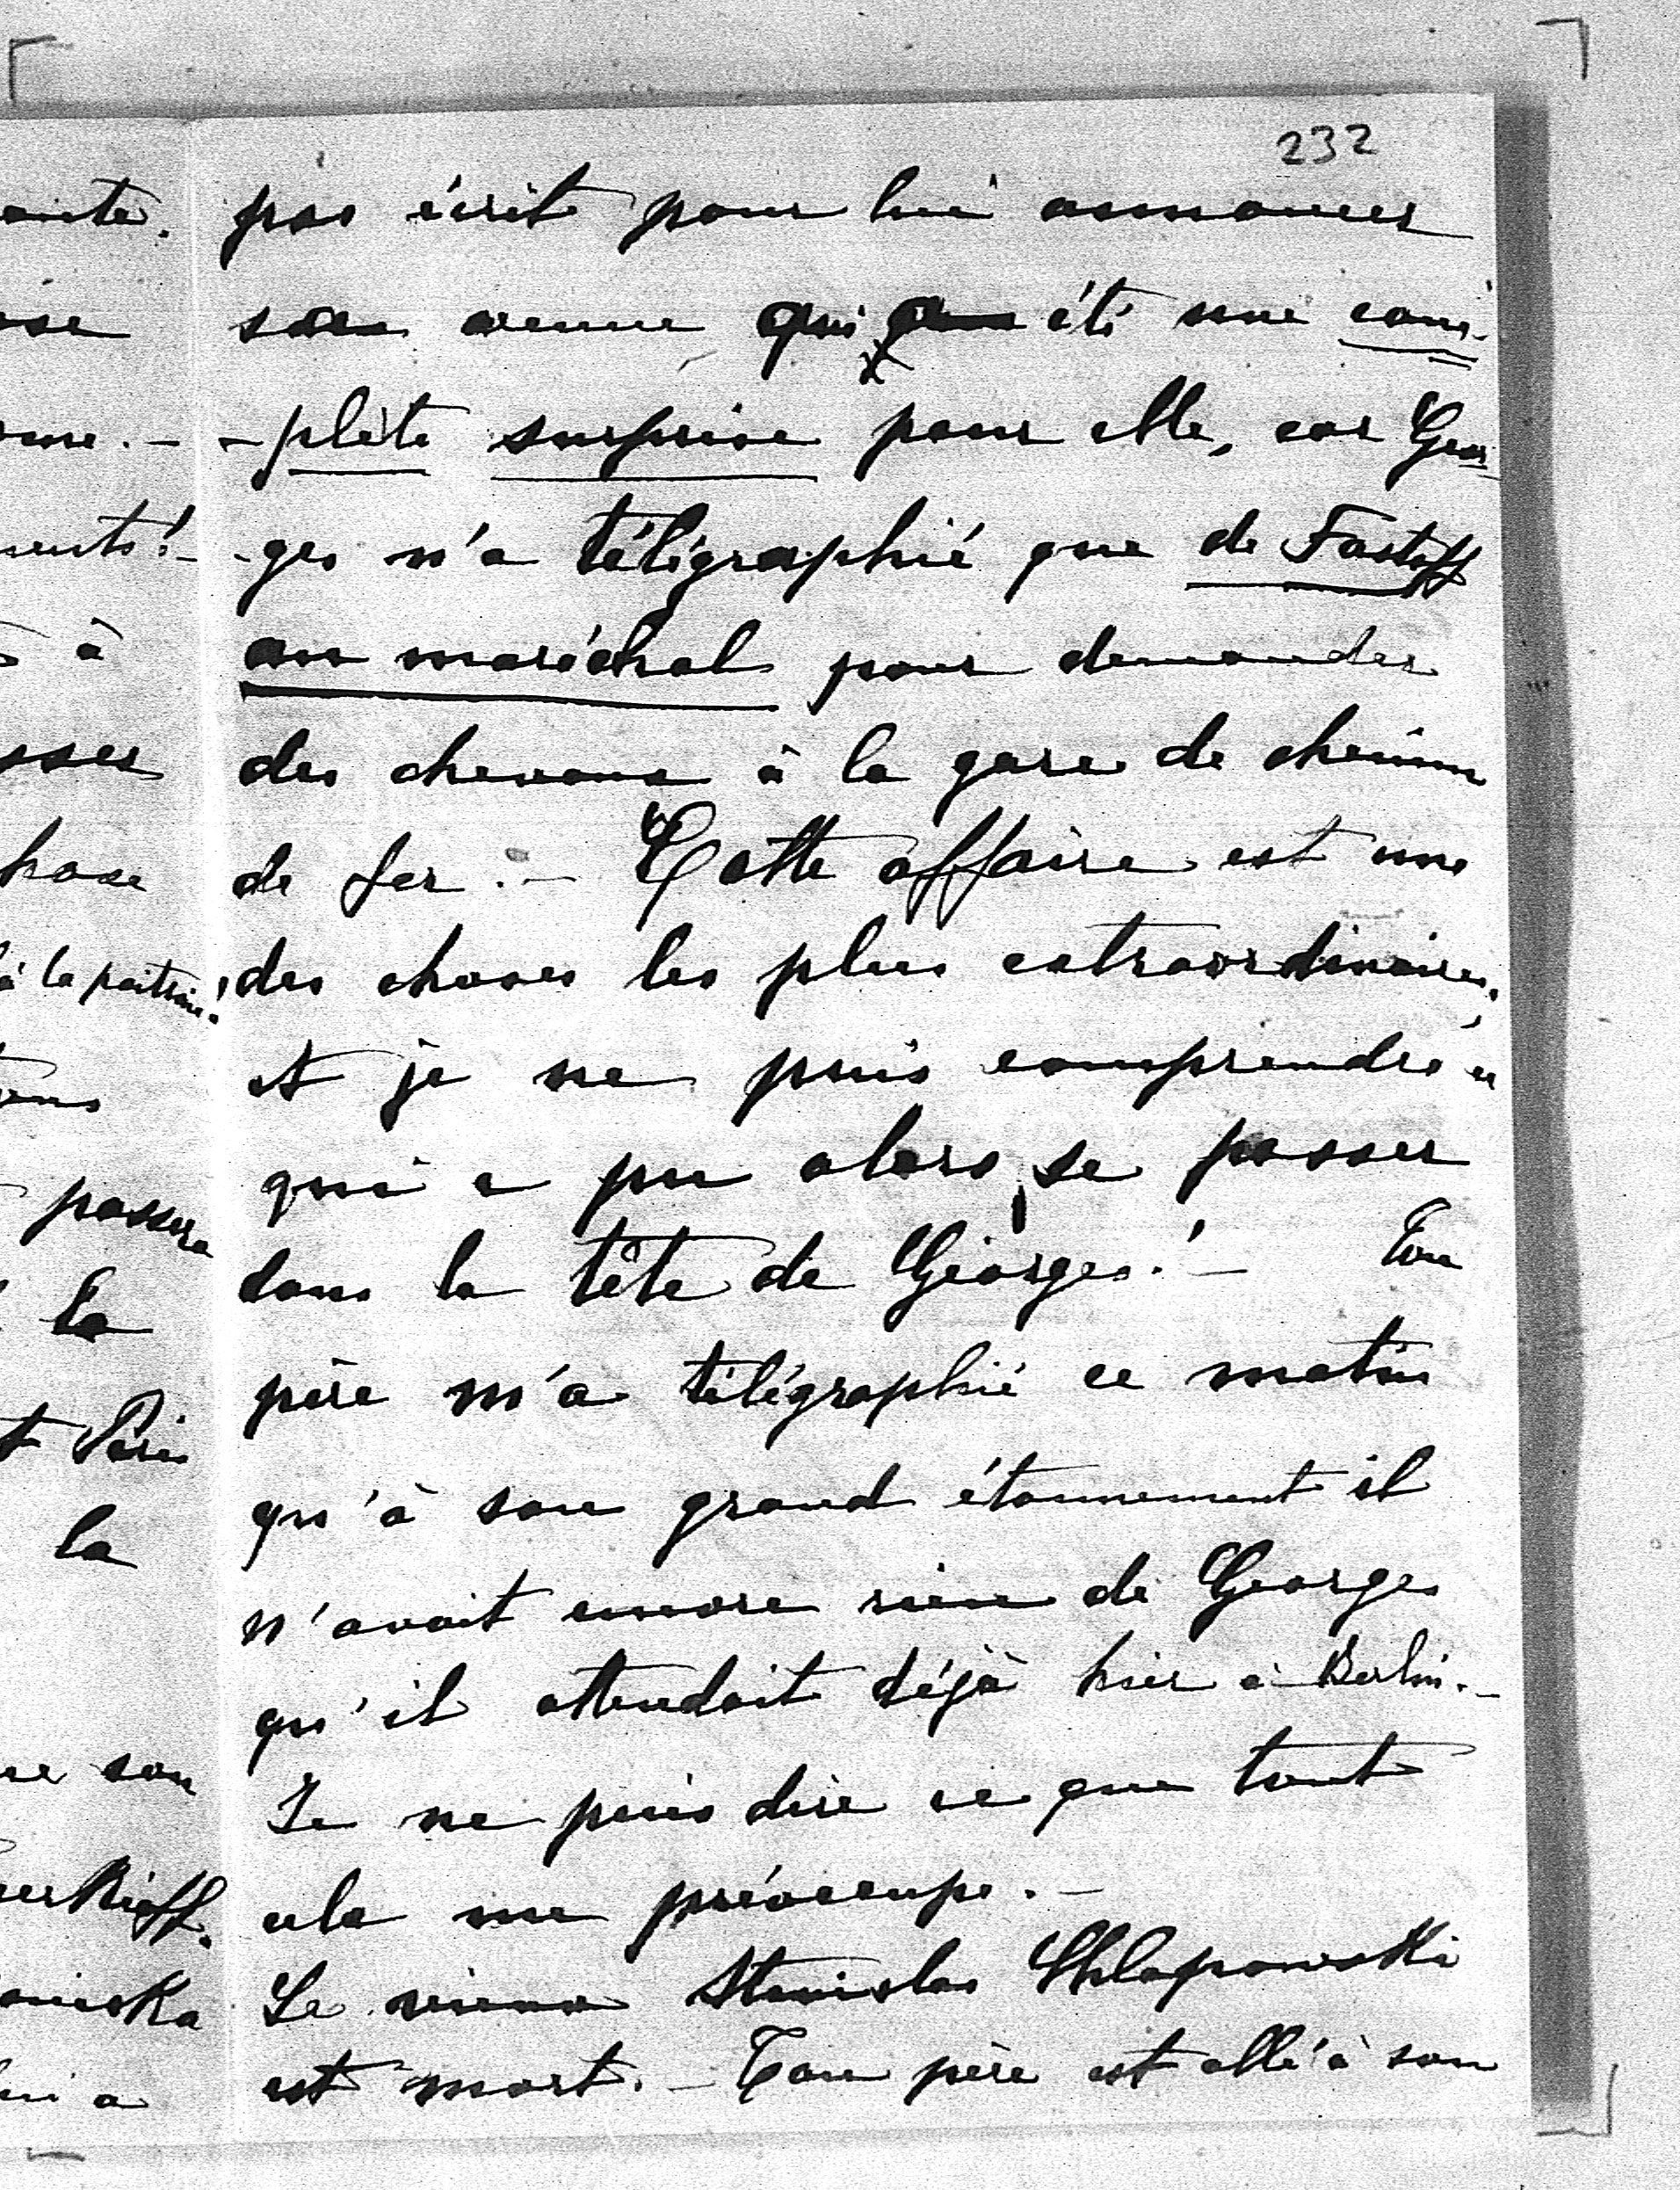 232
pas écrit pour lui annoncer
son venue qui a été une com-
-plète surprise pour elle, car Geor-
-ges n'a télégraphié que de Fastoff
au maréchal pour demander
des chevaux à la gare de chemin
de fer. - Cette affaire est une
des choses les plus extraordinaires,
et je ne puis comprendre ce
qui a pu alors se passer
dans la tête de Georges! - Ton
père m'a télégraphié ce matin
qu'à son grand étonnement il
n'avait encore rien de Georges
qu'il attendait déjà hier à Berlin. -
Je ne puis dire ce que tout
cela me préoccupe. -
Le vieux Stanislas Chlapowski
est mort. - Ton père est allé à son
à la poitrine!
passera
la
Paris
la
son
à